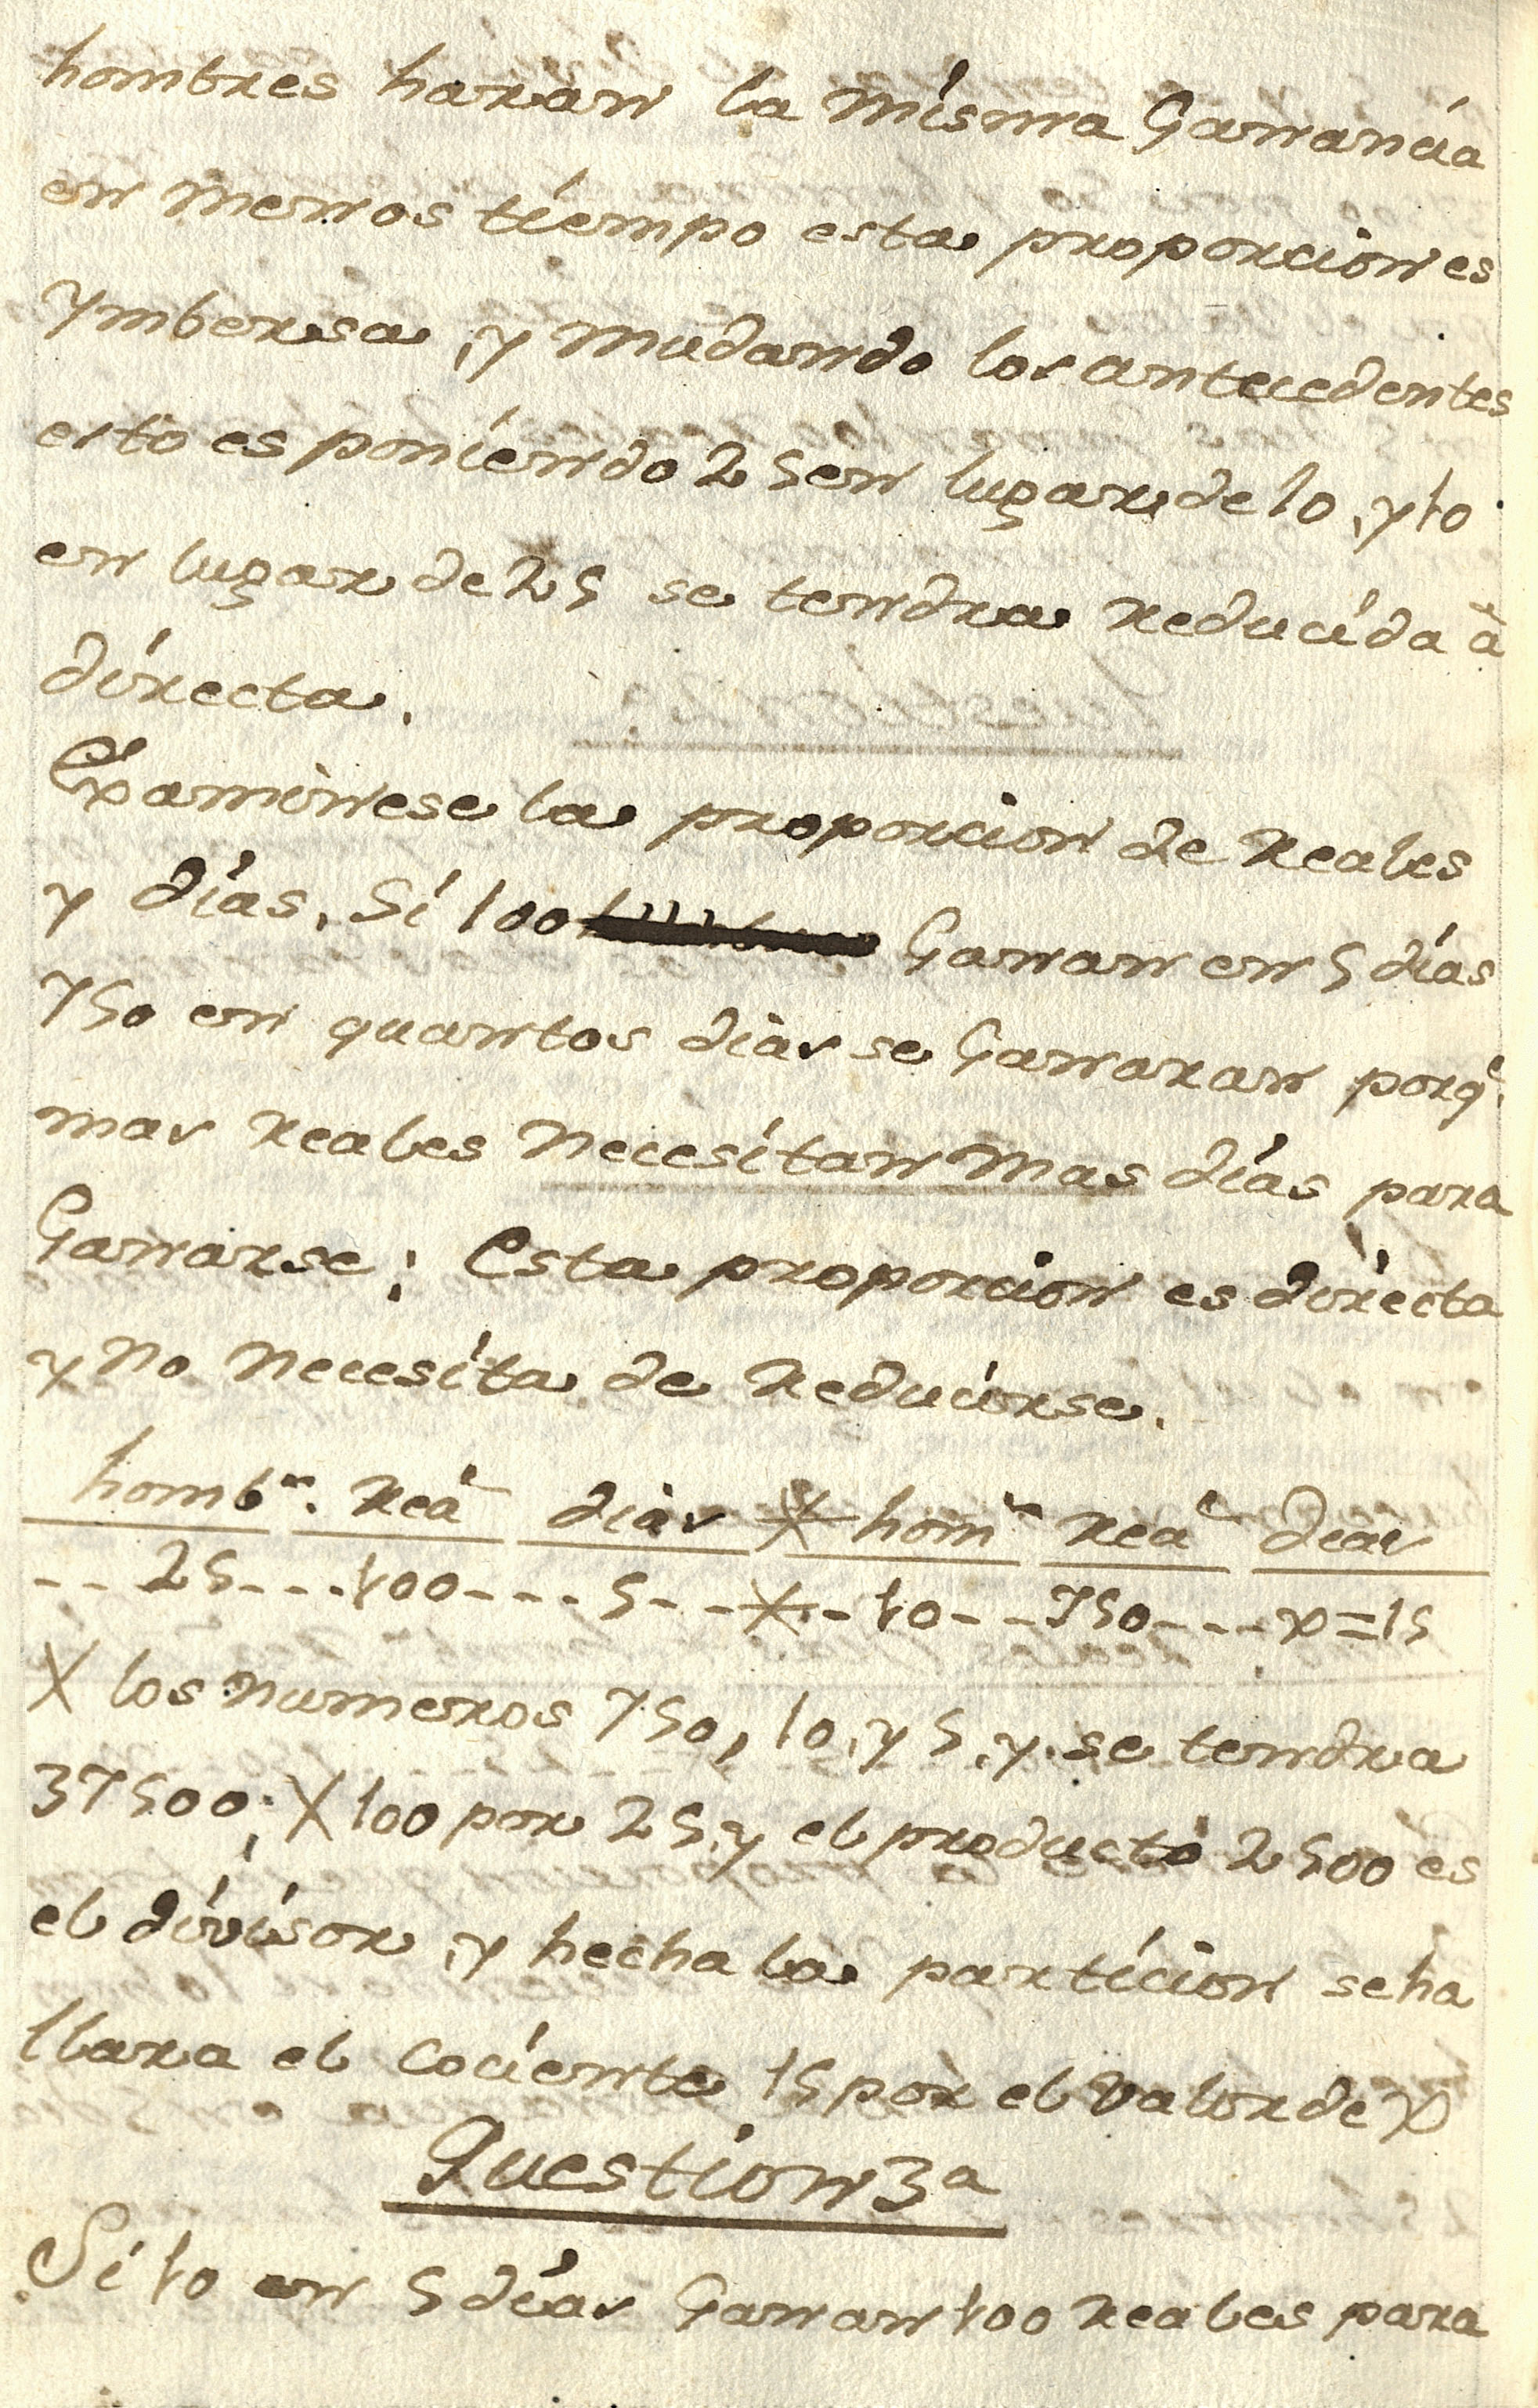 hombres haran la misma Ganancia
en menos tiempo esta proporcion es
ymbersa, y mudando los antecedentes
esto es poniendo 25 en lugar de 10, y 10
en lugar de 25 se tendra reducida à
directa.
Examinese la proporcion de reales
y dias, Si 100 Ganan en 5 dias
750 en quantos dias se Ganaran porq.e
mas reales necesitan mas dias para
Ganarse; Esta proporcion es directa
y no necesita de reducirse.
homb.s. rea.s dias X hom.s rea.s dias
-- 25 --- 100 ---- 5 - - X - 10 - - 750 ---- x = 15
X los numeros 750, 10, y 5, y se tendra
37500; X 100 por 25, y el producto 2500 es
el divisor, y hecha la particion se ha
llara el cociente 15 por el valor de x
Question 3a
Si 10 en 5 dias Ganan 100 reales para